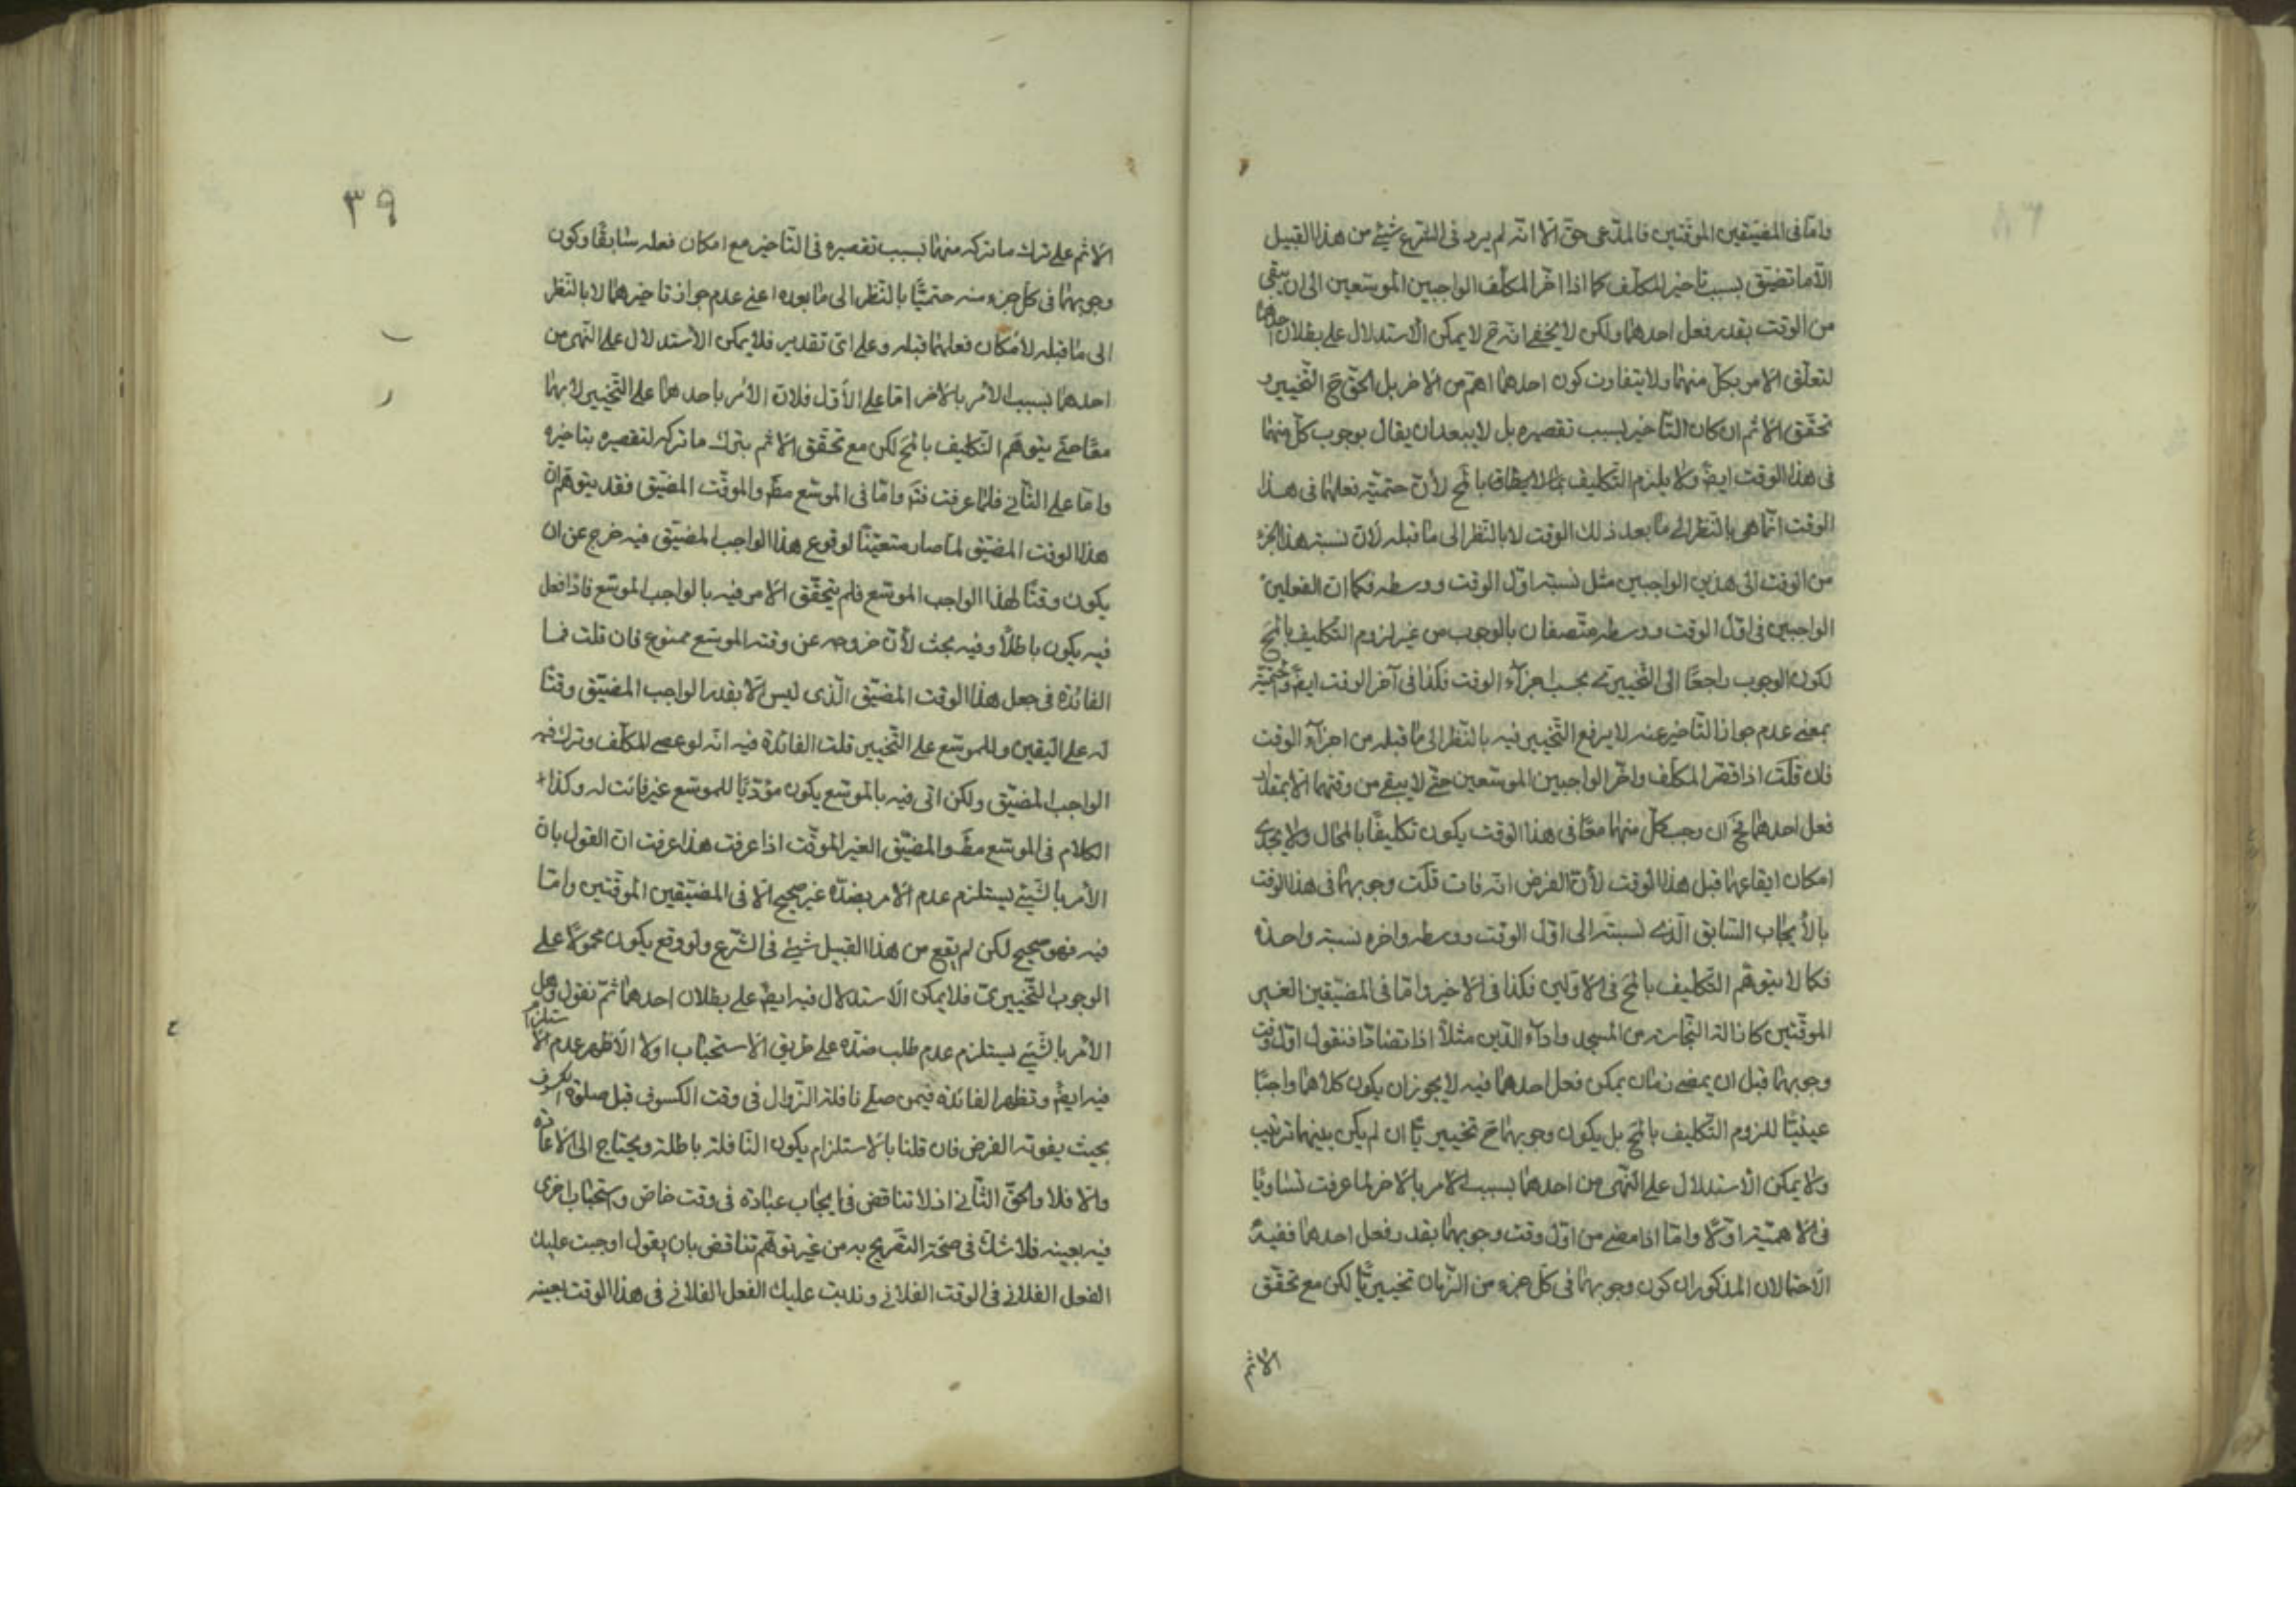 وامّا فى المضيّقين الموقّتين فالمدّعى حق الّا انّه لم يرد فى الشّرع شئ من هذا القبيل
الّا ما تضيّق بسبب تاخير المكلّف كما اذا اخّر المكلّف الواجبين الموسّعين الى ان يبقى
من الوقت بقدر فعل احدهما ولكن لا يخفى انّه ح لا يمكن الاستدلال على بطلان احدهما
لتعلّق الامر بكلّ منهما ولا يتفاوت كون احدهما اهمّ من الاخر بل الحقّ ح التّخيير و
تحقّق الاثم ان كان التّاخير بسبب تقصيره بل لا يبعد ان يقال بوجوب كلّ منهما
فى هذا الوقت ايضً ولا يلزم التّكليف بما لا يطاق بالمح لأنّ حتميّة فعلهما فى هذا
الوقت انّما هى بالنّظر الى ما بعد ذلك الوقت لا بالنّظر الى ما قبله لانّ نسبة هذا الجزء
من الوقت الى هذين الواجبين مثل نسبة اوّل الوقت ووسطه فكما انّ الفعلين
الواجبين فى اوّل الوقت ووسطه متّصفان بالوجوب من غير لزوم التّكليف بالمح
لكون الوجوب راجعًا الى التّخييرى بحسب اجزآء الوقت فكذا فى آخر الوقت ايضً والحتميّة
بمعنى عدم جواز التّاخير عنه لا يرفع التّخيير فيه بالنّظر الى ما قبله من اجزآء الوقت
فان قلت اذا قصّر المكلّف واخّر الواجبين الموسّعين حتّى لا يبقى من وقتهما الّا بمقدار
فعل احدهما فح ان وجب كلّ منهما معًا فى هذا الوقت يكون تكليفًا بالمحال ولا يجدى
امكان ايقاعهما قبل هذا الوقت لأنّ الفرض انّه فات قلت وجوبهما فى هذا الوقت
بالأيجاب السّابق الّذى نسبته الى اوّل الوقت ووسطه واخره نسبة واحدة
فكما لا يتوهّم التّكليف بالمح فى الاوّلين فكذا فى الاخير وامّا فى المضيّقين الغير
الموقّتين كازالة النّجاسة من المسجد واداء الدّين مثلًا اذا تضادّا فنقول اوّل وقت
وجوبهما قبل ان يمضى زمان يمكن فعل احدهما فيه لا يجوز ان يكون كلاهما واجبًا
عينيًّا للزوم التّكليف بالمح بل يكون وجوبهما ح تخييريًّا ان لم يكن بينهما ترتيب
ولا يمكن الاستدلال على النّهى من احدهما بسبب الامر بالاخر لما عرفت تساويا
فى الاهميّة اولا وامّا اذا مضى من اوّل وقت وجوبهما بقدر فعل احدهما ففيه
الاحتمالان المذكوران كون وجوبهما فى كلّ جزء من الزّمان تخييريًّا لكن مع تحقّق
الاثم
٣٩
الاثم على ترك ما تركه منهما بسبب تقصيره فى التّاخير مع امكان فعله سابقًا وكون
وجوبهما فى كلّ جزء منه حتميًّا بالنّظر الى ما بعده اعنى عدم جواز تاخيرهما لا بالنّظر
الى ما قبله لأمكان فعلهما قبله وعلى اىّ تقدير فلا يمكن الأستدلال على النّهى من
احدهما بسبب الأمر بالاخر امّا على الأوّل فلانّ الأمر باحدهما على التّخيير لا بهما
معًا حتّى يتوهّم التّكليف بالمح لكن مع تحقّق الاثم بترك ما تركه لتقصيره بتاخيره
وامّا على الثّانى فلما عرفت فتم وامّا فى الموسّع مط والموقّت المضيّق فقد يتوهّم انّ
هذا الوقت المضيّق لما صار متعيّنًا لوقوع هذا الواجب المضيّق فيه خرج عن ان
يكون وقتًا لهذا الواجب الموسّع فلم يتحقّق الامر فيه بالواجب الموسّع فاذا فعل
فيه يكون باطلًا وفيه بحث لأنّ خروجه عن وقته الموسّع ممنوع فان قلت فما
الفائدة فى جعل هذا الوقت المضيّق الّذى ليس الّا بقدر الواجب المضيّق وقتًا
له على اليقين وللموسّع على التّخيير قلت الفائدة فيه انّه لو عصى المكلّف وترك فيه
الواجب المضيّق ولكن اتى فيه بالموسّع يكون مؤدّيًا للموسّع غير فائت له وكذا
الكلام فى الموسّع مط والمضيّق الغير الموقّت اذا عرفت هذا عرفت انّ القول بانّ
الأمر بالشّئ يستلزم عدم الامر بضدّه غير صحيح الّا فى المضيّقين الموقّتين وامّا
فيه فهو صحيح لكن لم يقع من هذا القبيل شئ فى الشّرع ولو وقع يكون محمولًا على
الوجوب التّخييرى فلا يمكن الاستدلال فيه ايضً على بطلان احدهما ثمّ نقول وهل
الأمر بالشّئ يستلزم عدم طلب ضدّه على طريق الاستحباب اولا الأظهر عدم الاستلزام
فيه ايضً وتظهر الفائدة فيمن صلّى نافلة الزّوال فى وقت الكسوف قبل صلوة الكسوف
بحيث يفوته الفرض فان قلنا بالاستلزام يكون النّافلة باطلة ويحتاج الى الاعادة
والّا فلا والحقّ الثّانى اذ لا تناقض فى ايجاب عبادة فى وقت خاصّ واستحباب اخرى
فيه بعينه فلا شكّ فى صحّة التّصريح به من غير توهّم تناقض بان يقول اوجبت عليك
الفعل الفلانى فى الوقت الفلانى وندبت عليك الفعل الفلانى فى هذا الوقت بعينه